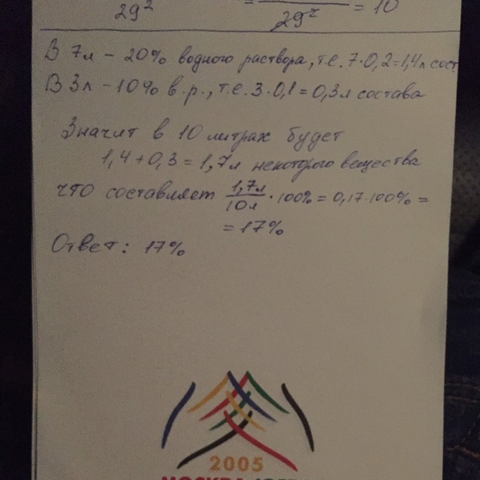 29²
= 29² = 10
В 7л – 20% водного раствора, т.е. 7·0,2=1,4л сост
В 3л – 10% в.р., т.е. 3·0,1=0,3л состава
Значит в 10 литрах будет
1,4+0,3=1,7л некоторого вещества
что составляет 1,7л/10л ·100%=0,17·100%=
=17%
Ответ: 17%
2005